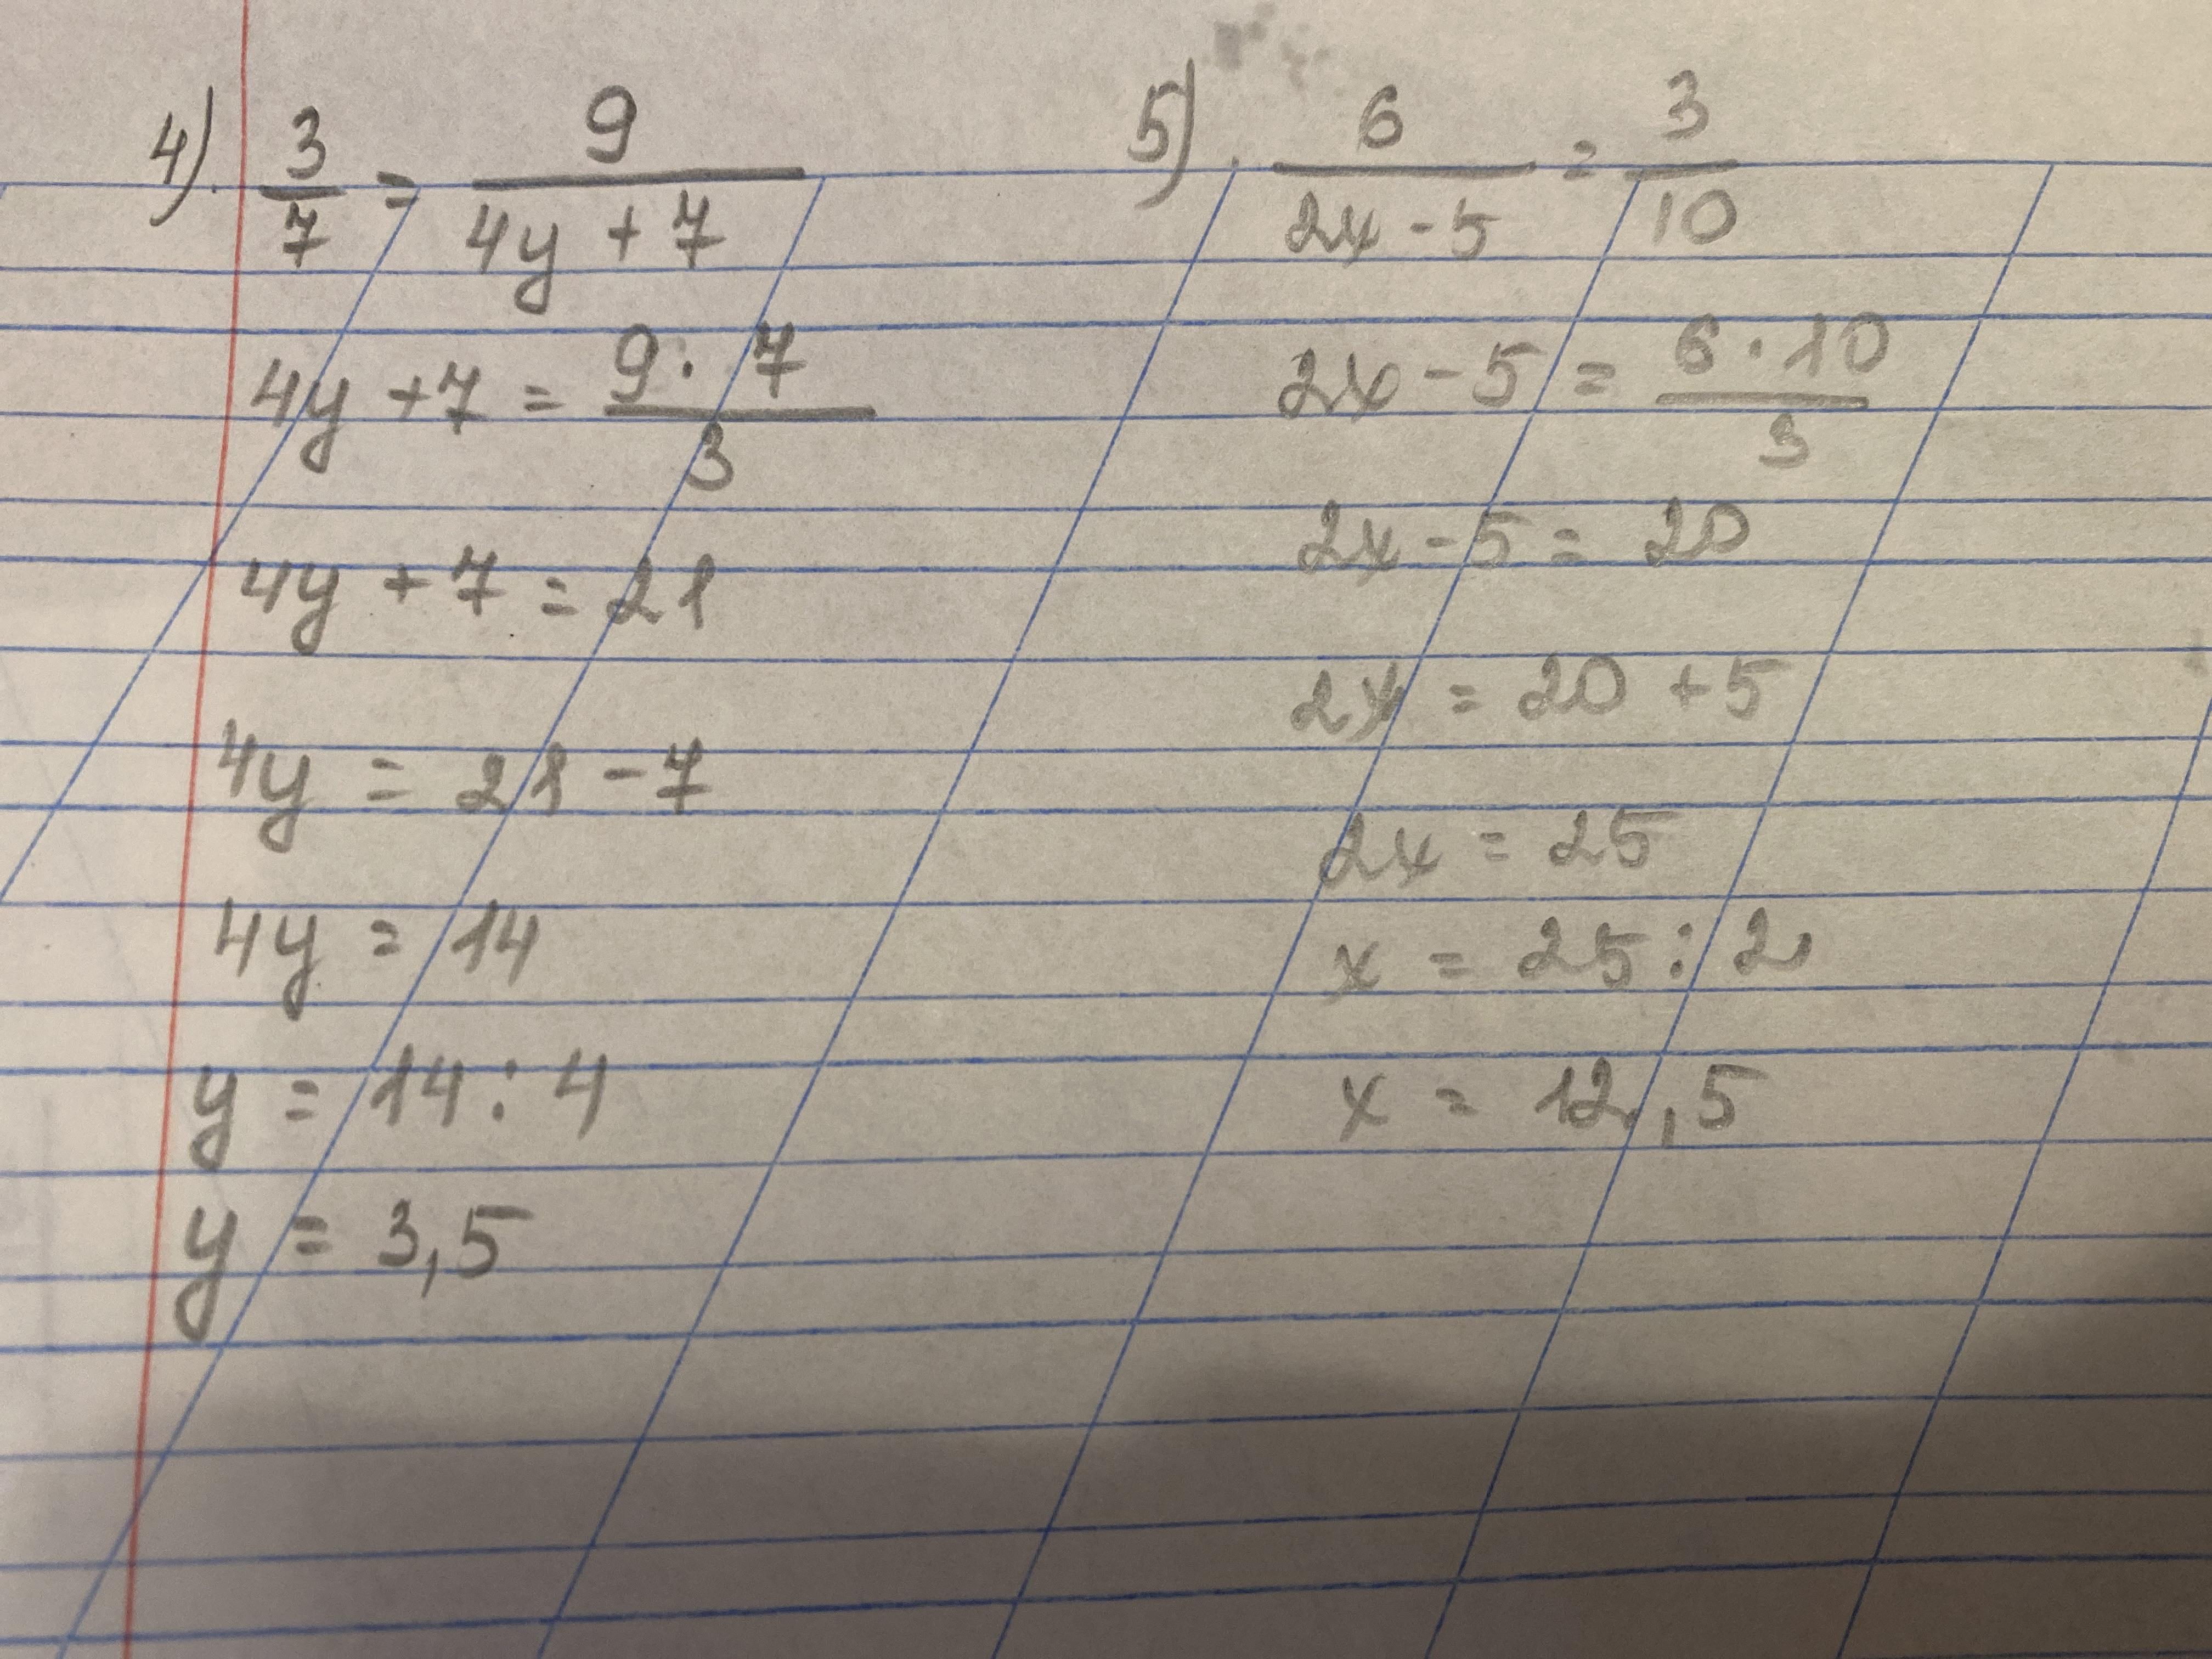 4). 3/7 = 9/(4y + 7)
4y + 7 = (9 · 7)/3
4y + 7 = 21
4y = 21 - 7
4y = 14
y = 14 : 4
y = 3,5
5). 6/(2x - 5) = 3/10
2x - 5 = (6 · 10)/3
2x - 5 = 20
2x = 20 + 5
2x = 25
x = 25 : 2
x = 12,5